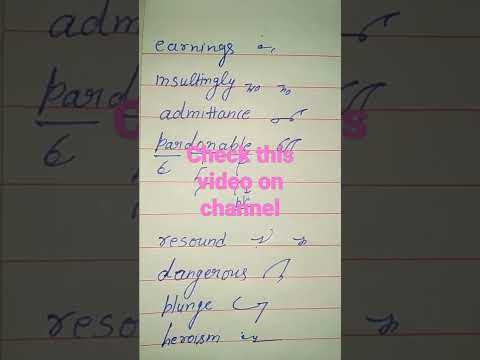 earnings
insultingly
admittance
pardonable
6
ple
Check this
video on
channel
resound
dangerous
plunge
heroism